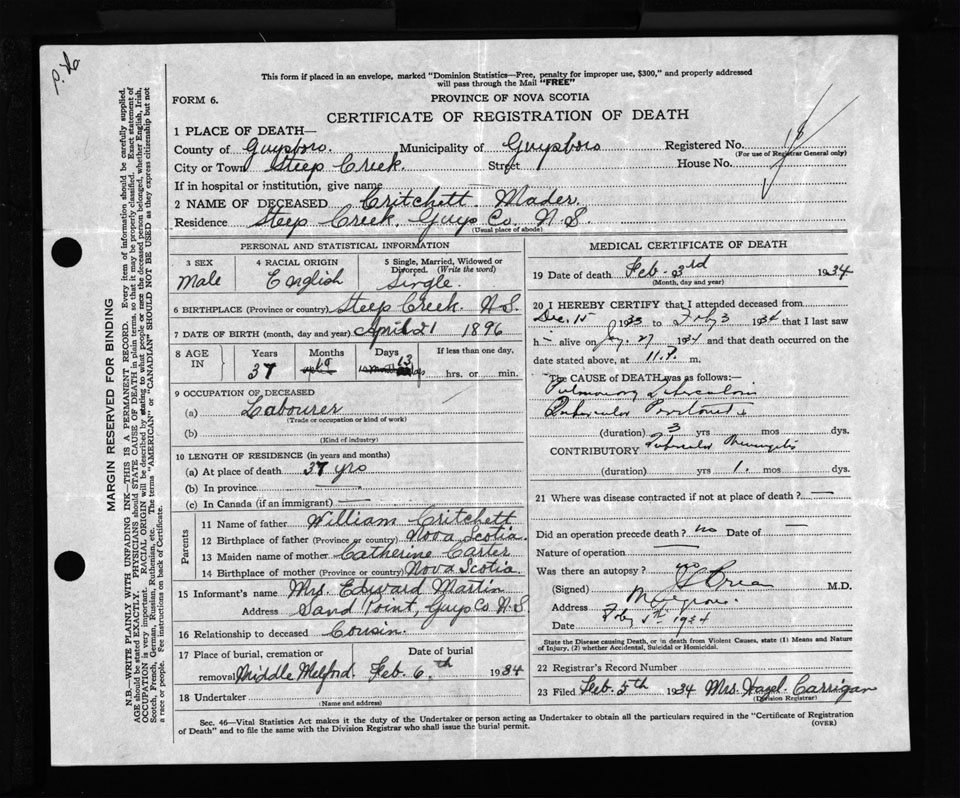 This form if placed in an envelope, marked "Dominion Statistics—Free, penalty for improper use, $300," and properly addressed
will pass through the Mail "FREE"
FORM 6.
PROVINCE OF NOVA SCOTIA
CERTIFICATE OF REGISTRATION OF DEATH
1 PLACE OF DEATH—
County of Guysboro. Municipality of Guysboro Registered No.
(For use of Registrar General only)
City or Town Steep Creek. Street House No.
If in hospital or institution, give name
2 NAME OF DECEASED Critchett Mader.
Residence Steep Creek, Guys Co. N.S.
(Usual place of abode)
PERSONAL AND STATISTICAL INFORMATION
3 SEX 4 RACIAL ORIGIN 5 Single, Married, Widowed or
Divorced. (Write the word)
Male English Single.
6 BIRTHPLACE (Province or country) Steep Creek. N.S.
7 DATE OF BIRTH (month, day and year) April 21 1896
8 AGE IN Years Months Days If less than one day,
37 13 hrs. or min.
9 OCCUPATION OF DECEASED
(a) Labourer
(Trade or occupation or kind of work)
(b)
(Kind of industry)
10 LENGTH OF RESIDENCE (in years and months)
(a) At place of death 37 yrs
(b) In province —
(c) In Canada (if an immigrant) —
Parents
11 Name of father William Critchett
12 Birthplace of father (Province or country) Nova Scotia.
13 Maiden name of mother Catherine Carter
14 Birthplace of mother (Province or country) Nova Scotia.
15 Informant's name Mrs. Edward Martin
Address Sand Point, Guys Co. N.S.
16 Relationship to deceased Cousin.
17 Place of burial, cremation or Date of burial
removal Middle Melford. Feb. 6th 1934
18 Undertaker
(Name and address)
MEDICAL CERTIFICATE OF DEATH
19 Date of death Feb - 3rd 1934
(Month, day and year)
20 I HEREBY CERTIFY that I attended deceased from
Dec. 15 1933 to Feby 3 1934 that I last saw
h alive on Jay. 27 1934 and that death occurred on the
date stated above, at 11. P. m.
The CAUSE of DEATH was as follows:—
Pulmonary Tuberculosis
Tubercular Peritonitis
(duration) 3 yrs mos dys.
CONTRIBUTORY Tubercular Meningitis
(duration) yrs 1. mos dys.
21 Where was disease contracted if not at place of death? —
Did an operation precede death? no Date of —
Nature of operation —
Was there an autopsy? no
(Signed) O'Brien M.D.
Address Mulgrave
Date Feby 1934
State the Disease causing Death, or in death from Violent Causes, state (1) Means and Nature
of Injury, (2) whether Accidental, Suicidal or Homicidal.
22 Registrar's Record Number
23 Filed Feb. 5th 1934 Mrs. Hazel. Carrigan
(Division Registrar)
Sec. 46—Vital Statistics Act makes it the duty of the Undertaker or person acting as Undertaker to obtain all the particulars required in the "Certificate of Registration
of Death" and to file the same with the Division Registrar who shall issue the burial permit.
(OVER)
MARGIN RESERVED FOR BINDING
N.B.—WRITE PLAINLY WITH UNFADING INK—THIS IS A PERMANENT RECORD. Every item of information should be carefully supplied.
AGE should be stated EXACTLY. PHYSICIANS should STATE CAUSE OF DEATH in plain terms, so that it may be properly classified. Exact statement of
OCCUPATION is very important. RACIAL ORIGIN will be described by stating to what people or race the deceased person belonged, whether English, Irish,
Scotch, French, German, Russian, Ruthenian, etc. The terms "AMERICAN" or "CANADIAN" SHOULD NOT BE USED as they express citizenship but not
a race or people. See instructions on back of Certificate.